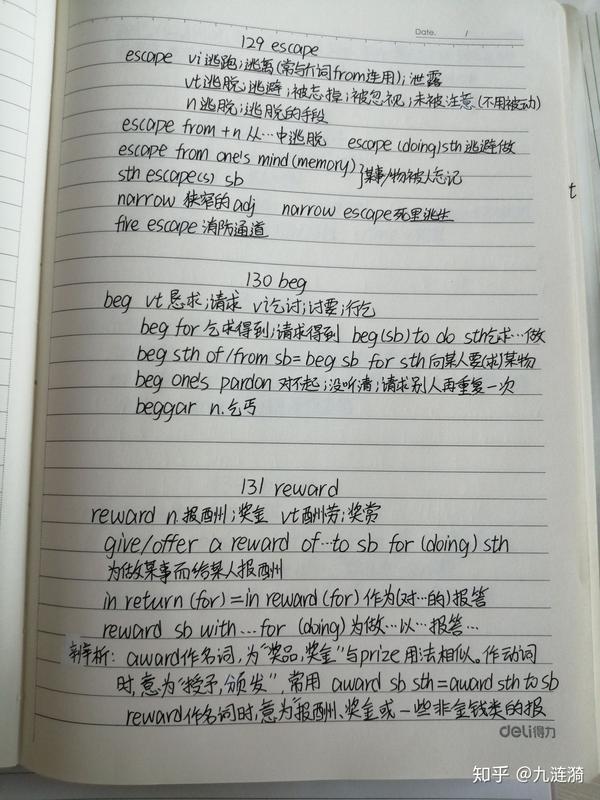 Date. /
129 escape
escape vi逃跑;逃离(常与介词from连用);泄露
vt逃脱;逃避;被忘掉;被忽视;未被注意(不用被动)
n逃脱;逃脱的手段
escape from +n 从…中逃脱 escape (doing)sth逃避做
escape from one's mind(memory)
sth escape(s) sb }某事/物被人忘记
narrow 狭窄的adj narrow escape死里逃生
fire escape 消防通道
130 beg
beg vt恳求;请求 vi乞讨;讨要;行乞
beg for 乞求得到;请求得到 beg(sb)to do sth乞求…做
beg sth of/from sb=beg sb for sth向某人要(求)某物
beg one's pardon 对不起;没听清;请求别人再重复一次
beggar n.乞丐
131 reward
reward n.报酬;奖金 vt酬劳;奖赏
give/offer a reward of…to sb for (doing) sth
为做某事而给某人报酬
in return (for)=in reward (for)作为(对…的)报答
reward sb with…for (doing)为做…以…报答…
辨析:award作名词,为"奖品,奖金"与prize用法相似。作动词
时,意为"授予,颁发",常用 award sb sth=award sth to sb
reward作名词时,意为"报酬、奖金或一些非金钱类的报
deli得力
t
知乎 @九涟漪